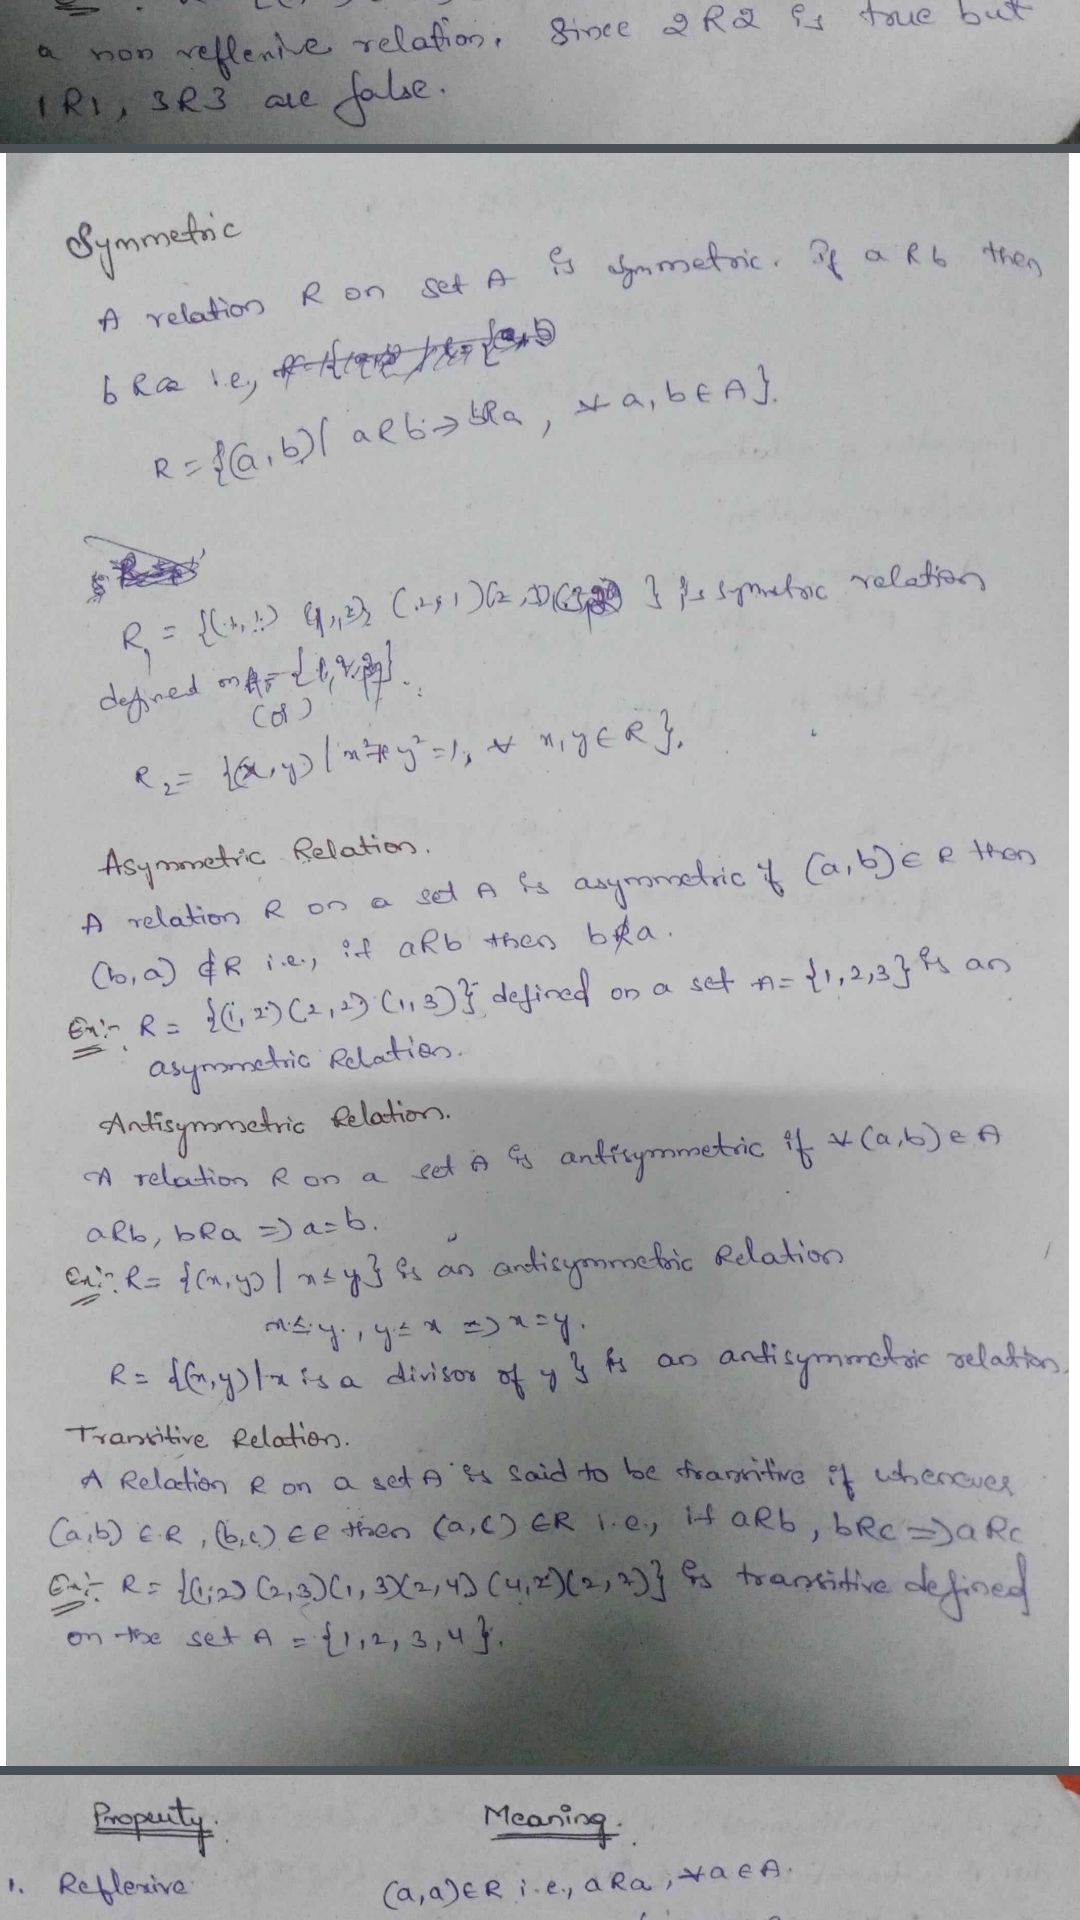 a non reflexive relation. Since 2R2 is true but
1R1, 3R3 are false.
Symmetric
A relation R on set A is symmetric. If a R b then
b R a i.e,
R = {(a, b) / aRb → bRa, ∀ a, b ∈ A}.
R₁ = {(1,1) (1,2) (2,1) (2, } is symetric relation
defined on A =
(or)
R₂ = {(x, y) / x² + y² = 1, ∀ x, y ∈ R}.
Asymmetric Relation.
A relation R on a set A is asymmetric if (a, b) ∈ R then
(b, a) ∉ R i.e., if aRb then bR̸a.
Ex:- R = {(1, 2) (2, 2) (1, 3)} defined on a set A = {1, 2, 3} is an
asymmetric Relation.
Antisymmetric Relation.
A relation R on a set A is antisymmetric if ∀ (a, b) ∈ A
aRb, bRa => a=b.
Ex:- R = {(x, y) | x ≤ y} is an antisymmetric Relation
x ≤ y, y ≤ x => x = y.
R = {(x, y) | x is a divisor of y} is an antisymmetric relation.
Transitive Relation.
A Relation R on a set A is said to be transitive if whenever
(a, b) ∈ R, (b, c) ∈ R then (a, c) ∈ R i.e., if aRb, bRc => aRc
Ex:- R = {(1, 2) (2, 3) (1, 3) (2, 4) (4, 2) (2, 2)} is transitive defined
on the set A = {1, 2, 3, 4}.
Property. Meaning.
1. Reflexive (a, a) ∈ R i.e., aRa, ∀ a ∈ A.